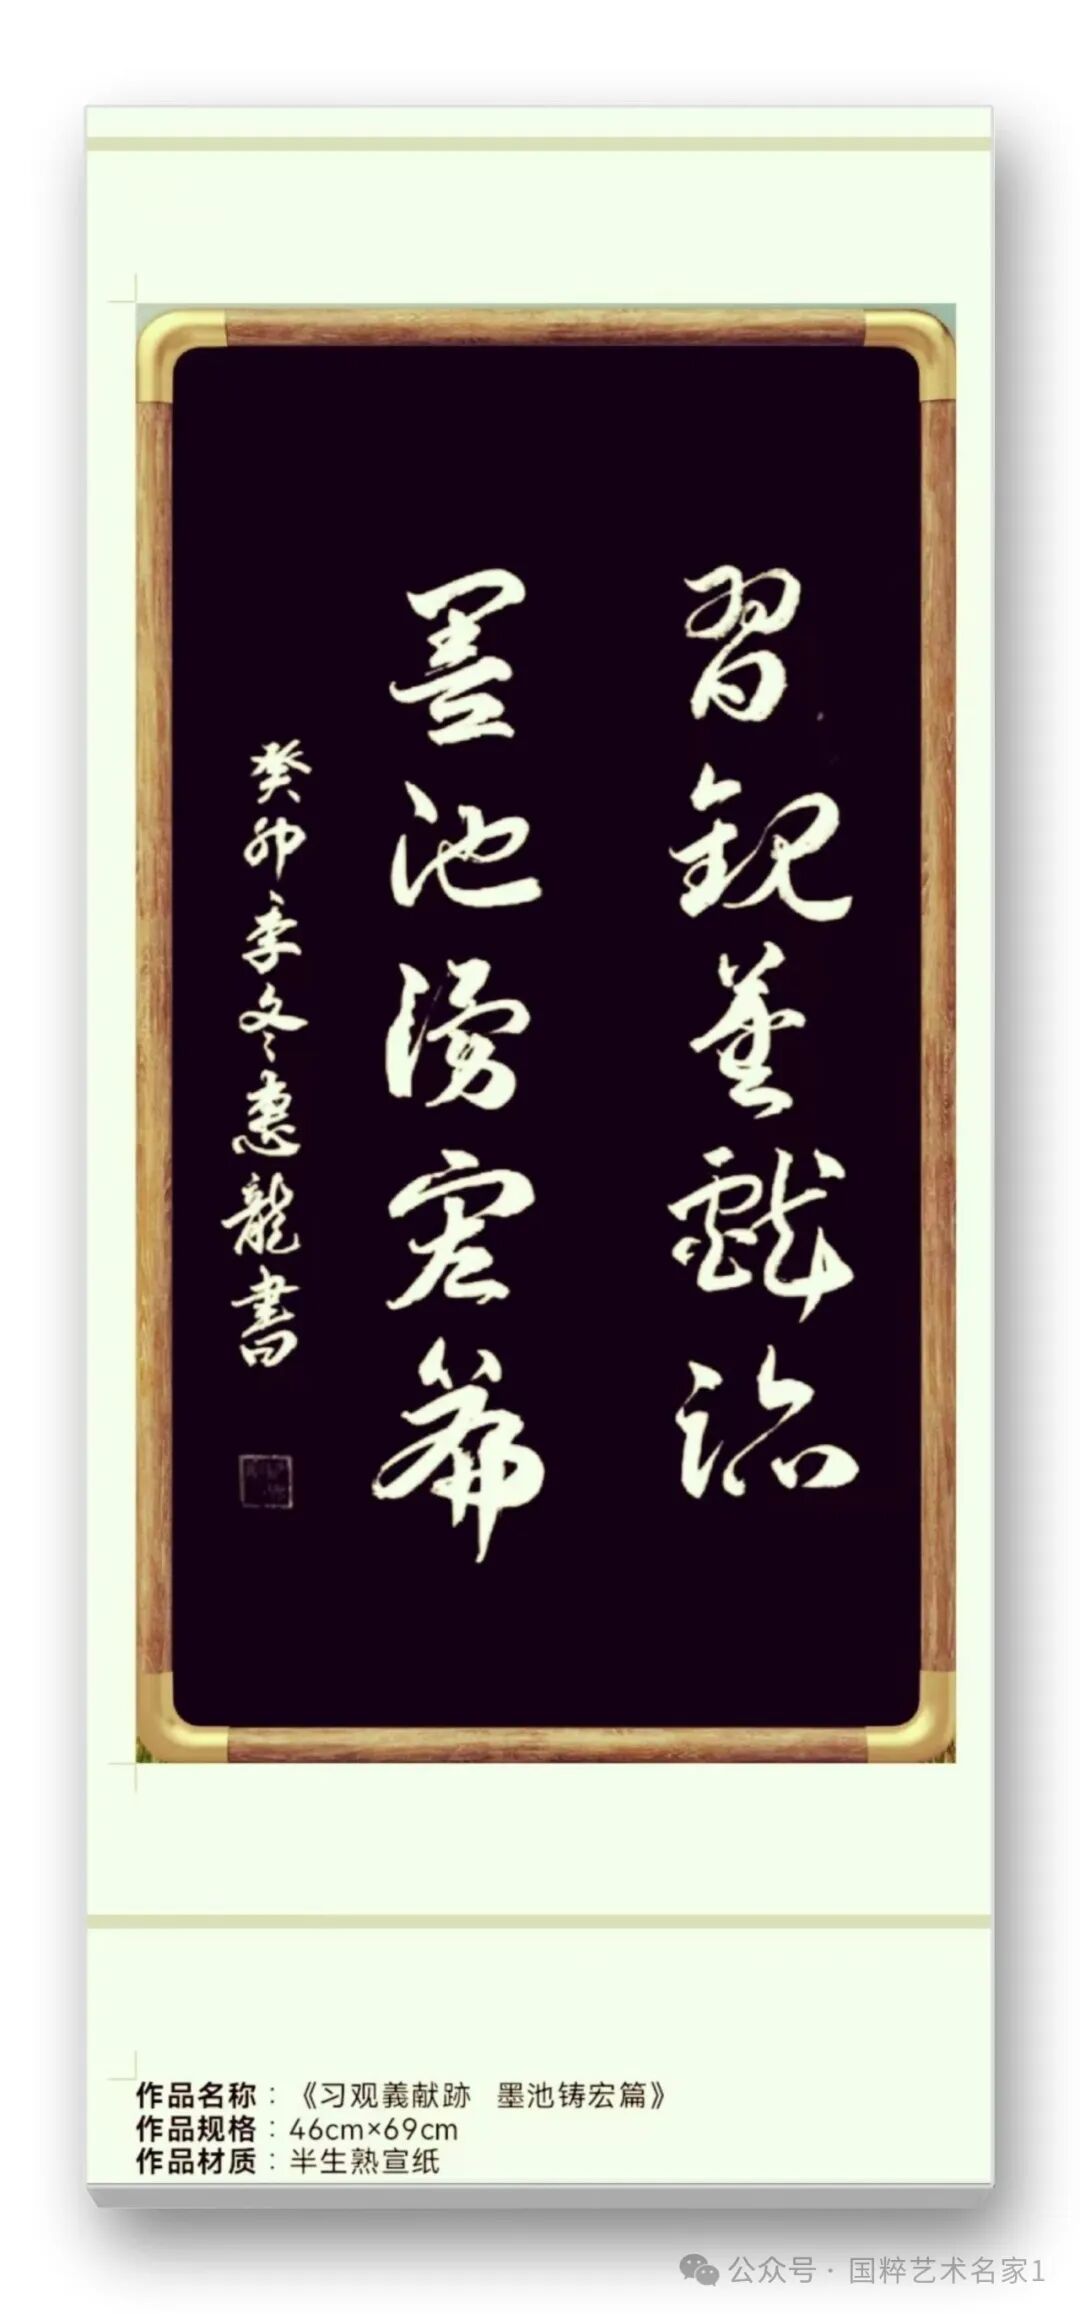 習觀羲戲跡
墨池湧宏篇
癸卯季冬惠龍書
作品名称：《习观義献跡 墨池铸宏篇》
作品规格：46cm×69cm
作品材质：半生熟宣纸
公众号·国粹艺术名家1